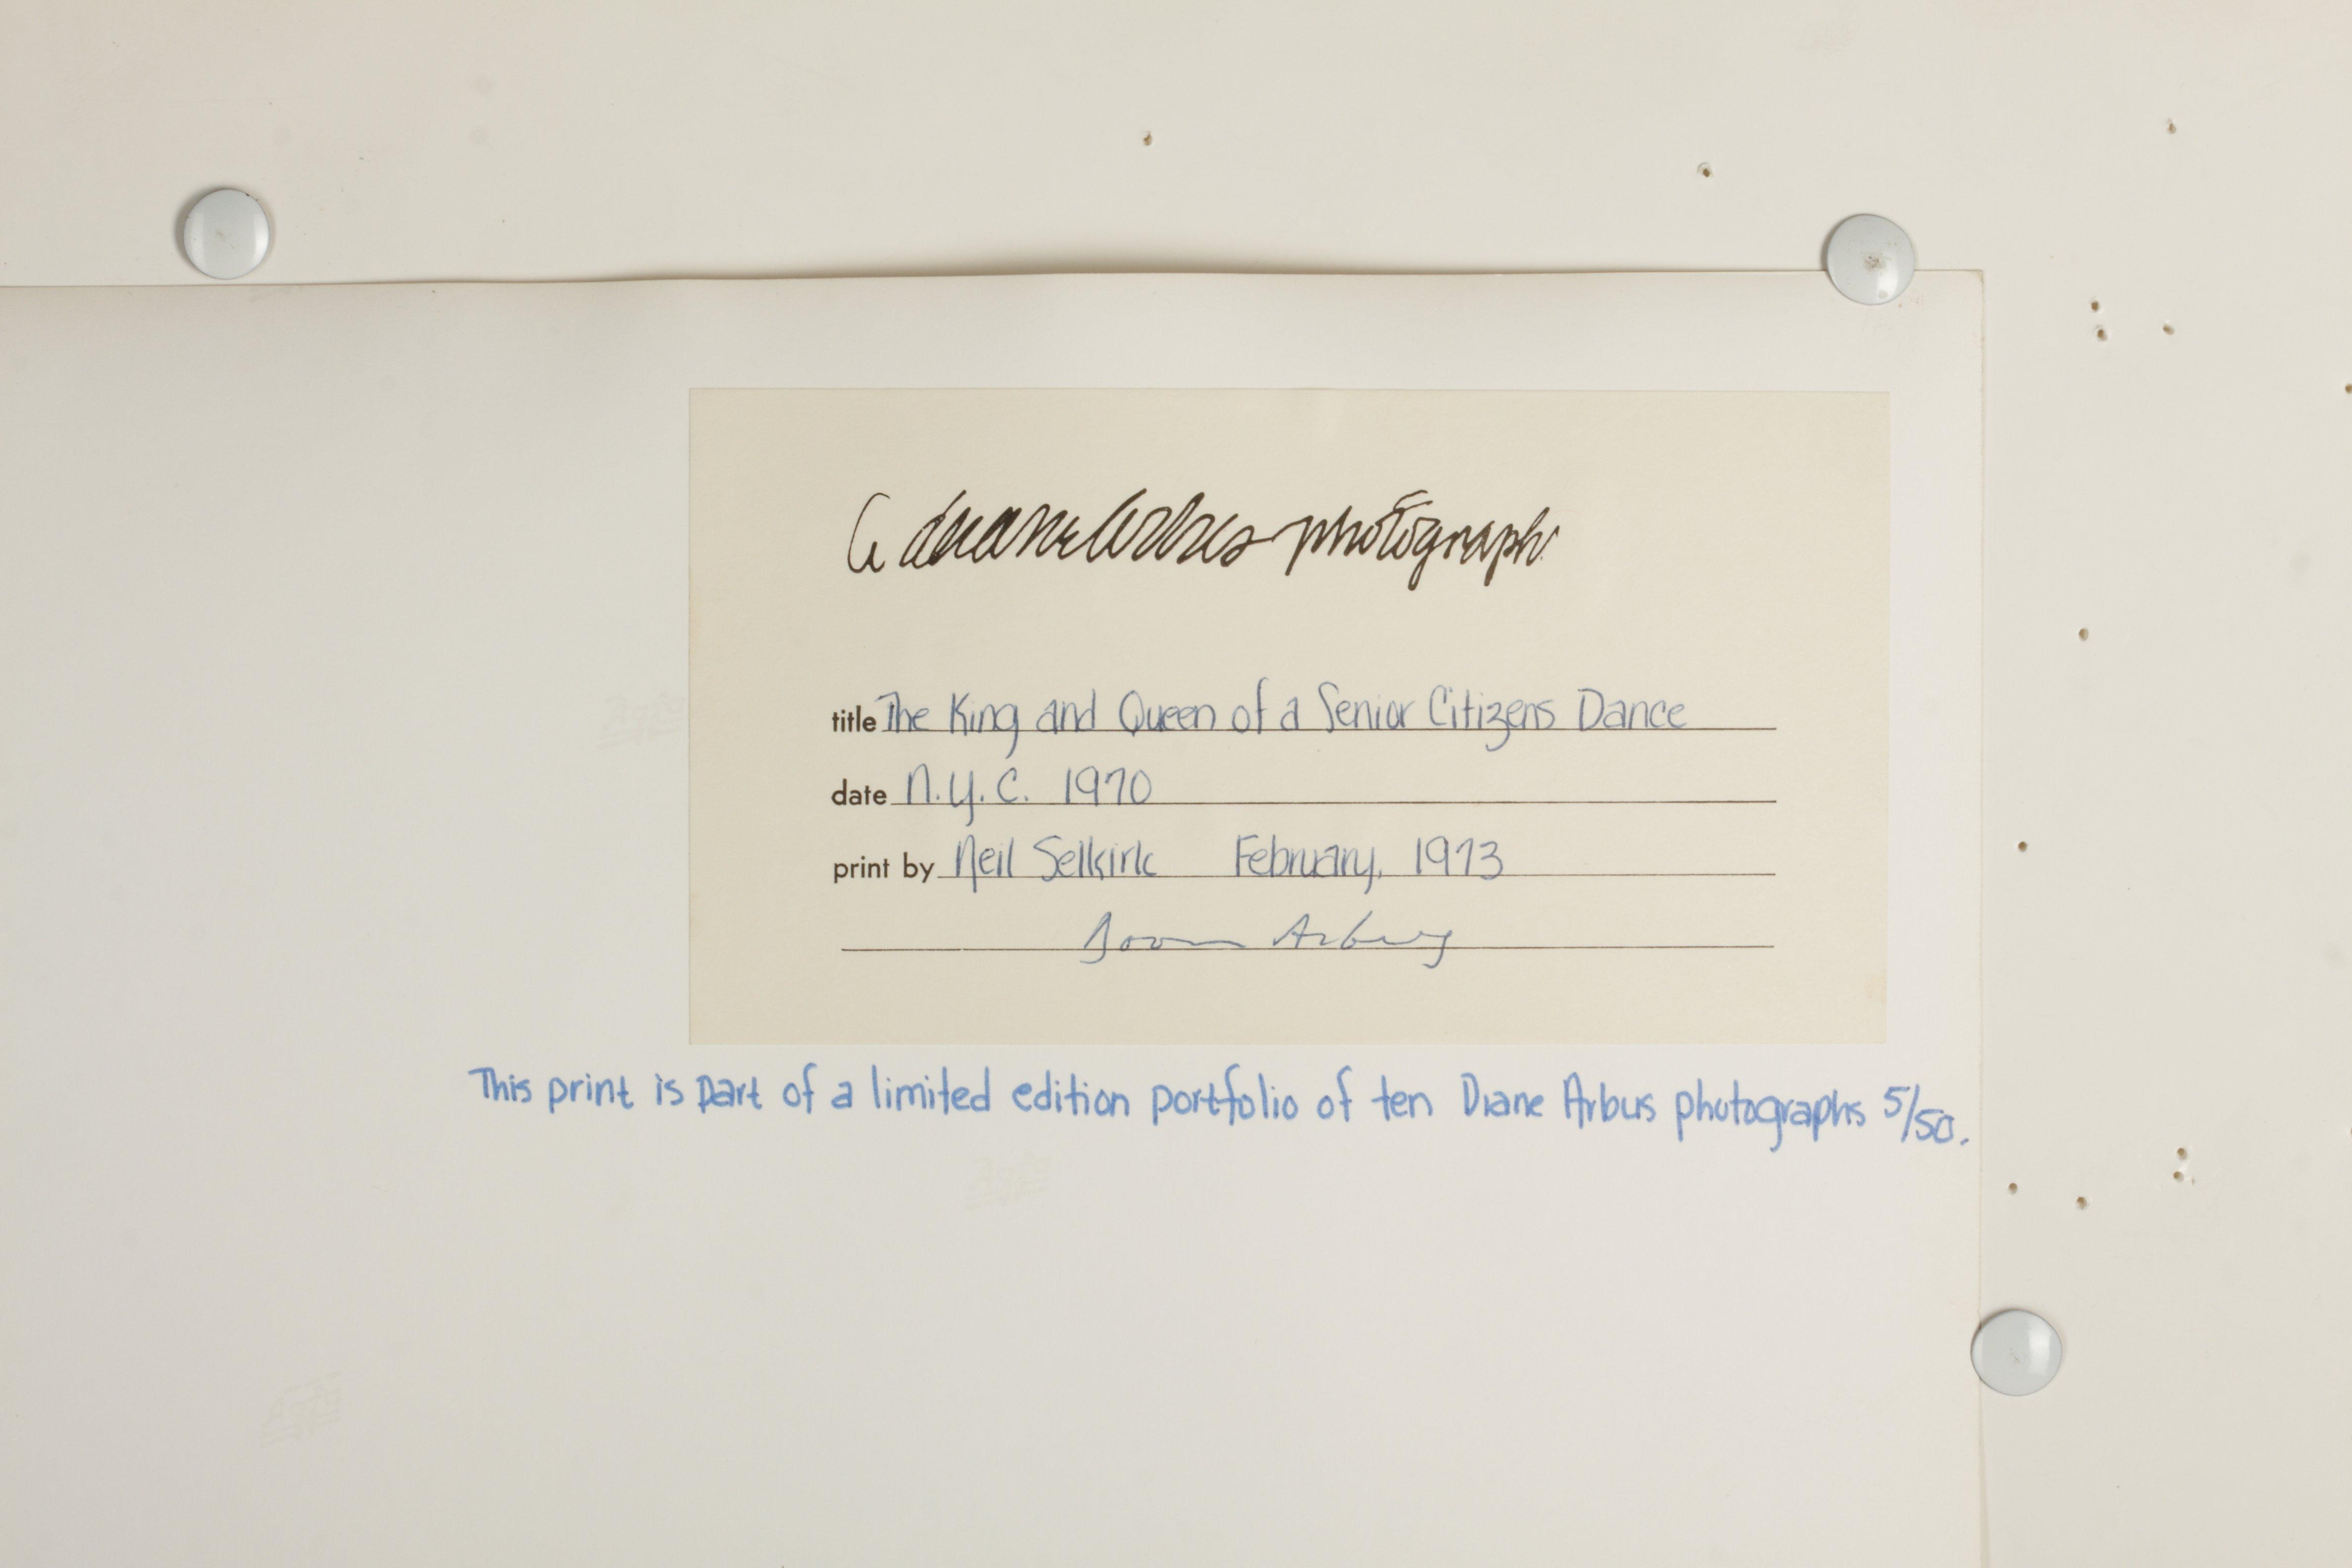 a diane arbus photograph
title The King and Queen of a Senior Citizens Dance
date N.Y.C. 1970
print by Neil Selkirk February, 1973
Doon Arbus
This print is part of a limited edition portfolio of ten Diane Arbus photographs 5/50.